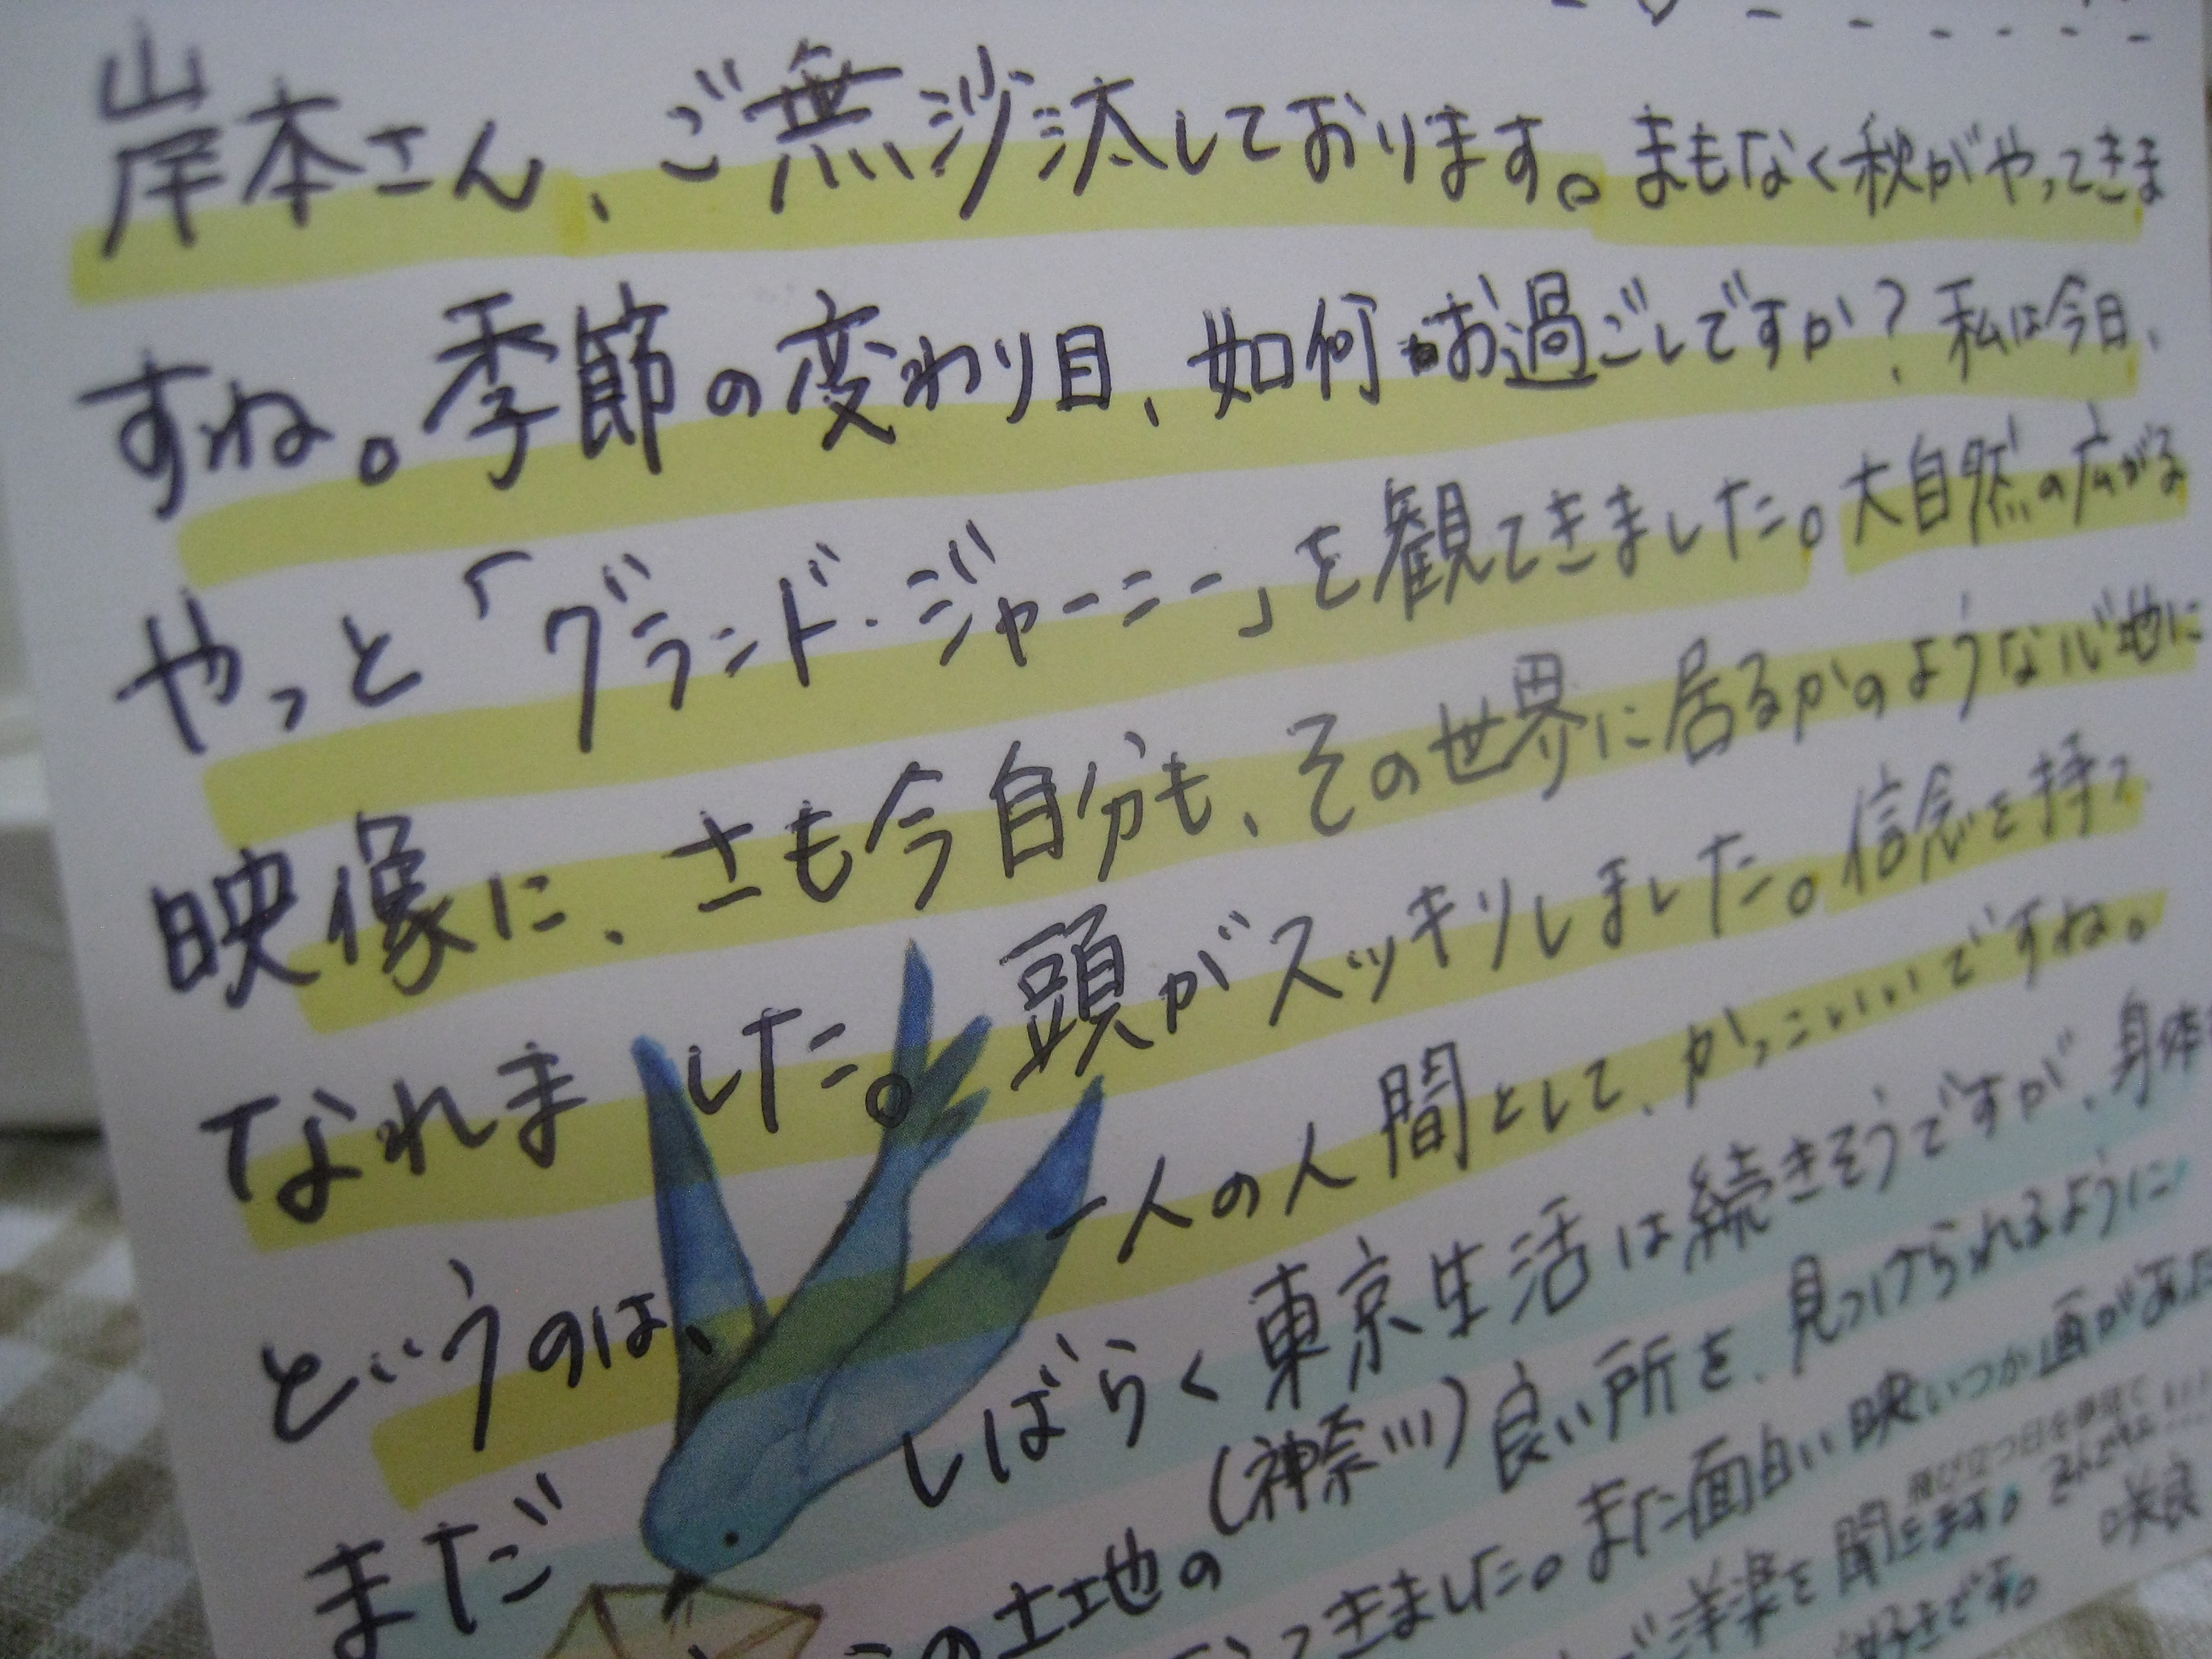 岸本さん、ご無沙汰しております。まもなく秋がやってきま
すね。季節の変わり目、如何お過ごしですか？私は今日、
やっと「グランド・ジャーニー」を観てきました。大自然の広がる
映像に、さも今自分も、その世界に居るかのような心地に
なれました。頭がスッキリしました。信念を持つ
というのは、一人の人間として、かっこいいですね。
まだしばらく東京生活は続きそうですが、身体
この土地の（神奈川）良い所を、見つけられるように
ってきました。また面白い映画があ
洋楽を聞きます。
好きです。